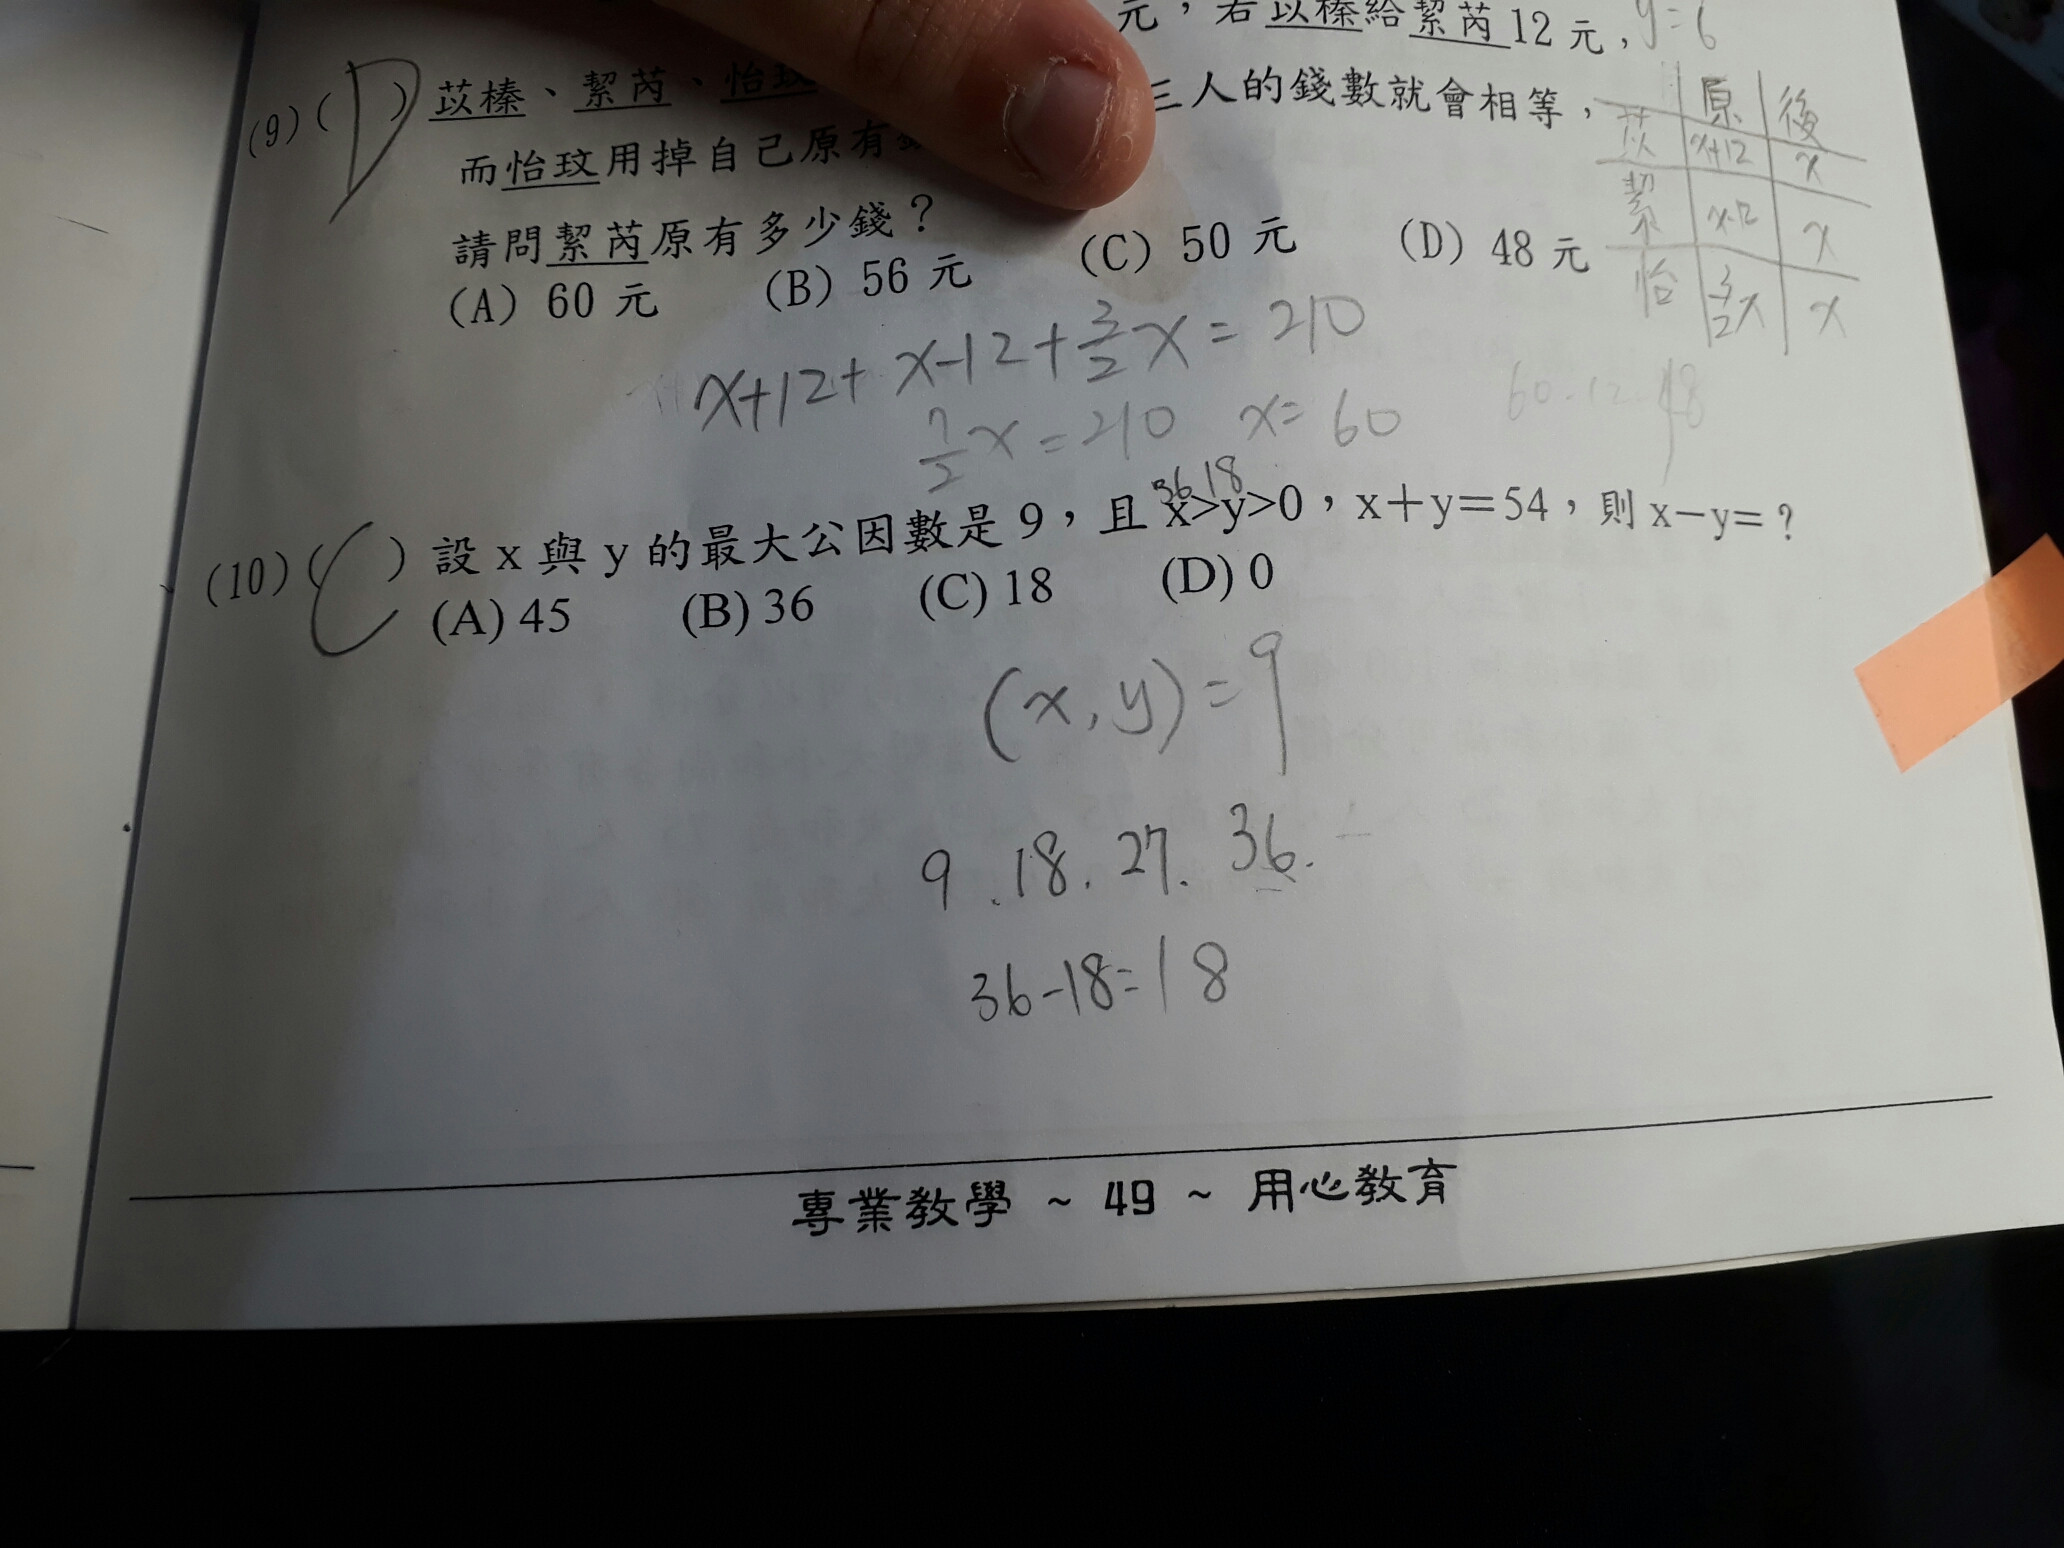 元，若苡榛給絜芮12元，y=6
(9)(D) 苡榛、絜芮、怡玟 三人的錢數就會相等，
而怡玟用掉自己原有
請問絜芮原有多少錢？
(A) 60 元 (B) 56 元 (C) 50 元 (D) 48 元
原 後
苡 x+12 x
絜 x-12 x
怡 3/2 x x
x+12+x-12+3/2 x=210
7/2 x=210 x=60 60-12=48
36 18
(10)(C) 設 x 與 y 的最大公因數是 9，且 x>y>0，x+y=54，則 x-y=?
(A) 45 (B) 36 (C) 18 (D) 0
(x,y)=9
9.18.27.36.
36-18=18
專業教學 ~ 49 ~ 用心教育